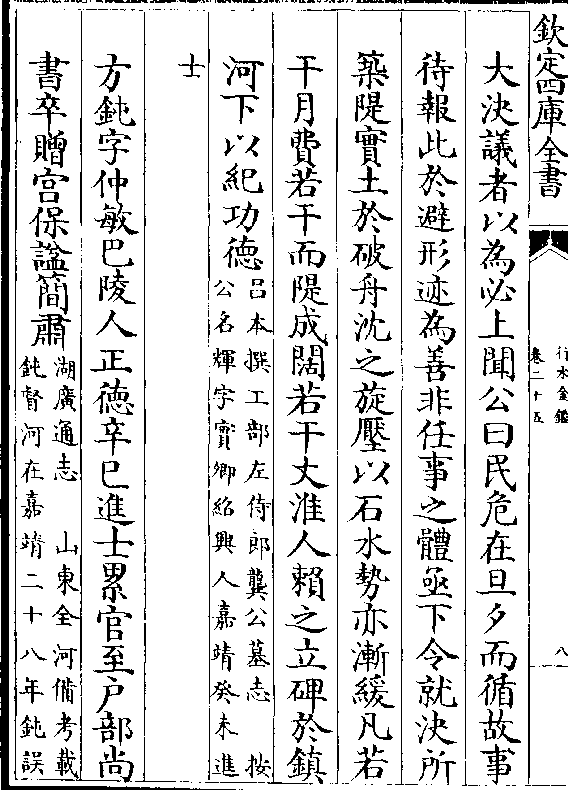 欽定四庫全書
行水金鑑
卷二十五
八
大決議者以為必上聞公曰民危在旦夕而循故事
待報此於避形迹為善非任事之體亟下令就決所
築隄實土於破舟沈之旋壓以石水勢亦漸緩凡若
干月費若干而隄成闊若干丈淮人賴之立碑於鎮
河下以紀功德
吕本撰工部左侍郎龔公墓志　按
公名輝字實卿紹興人嘉靖癸未進
士
方鈍字仲敏巴陵人正德辛巳進士累官至户部尚
書卒贈宫保謚簡肅
湖廣通志　山東全河備考載
鈍督河在嘉靖二十八年鈍誤